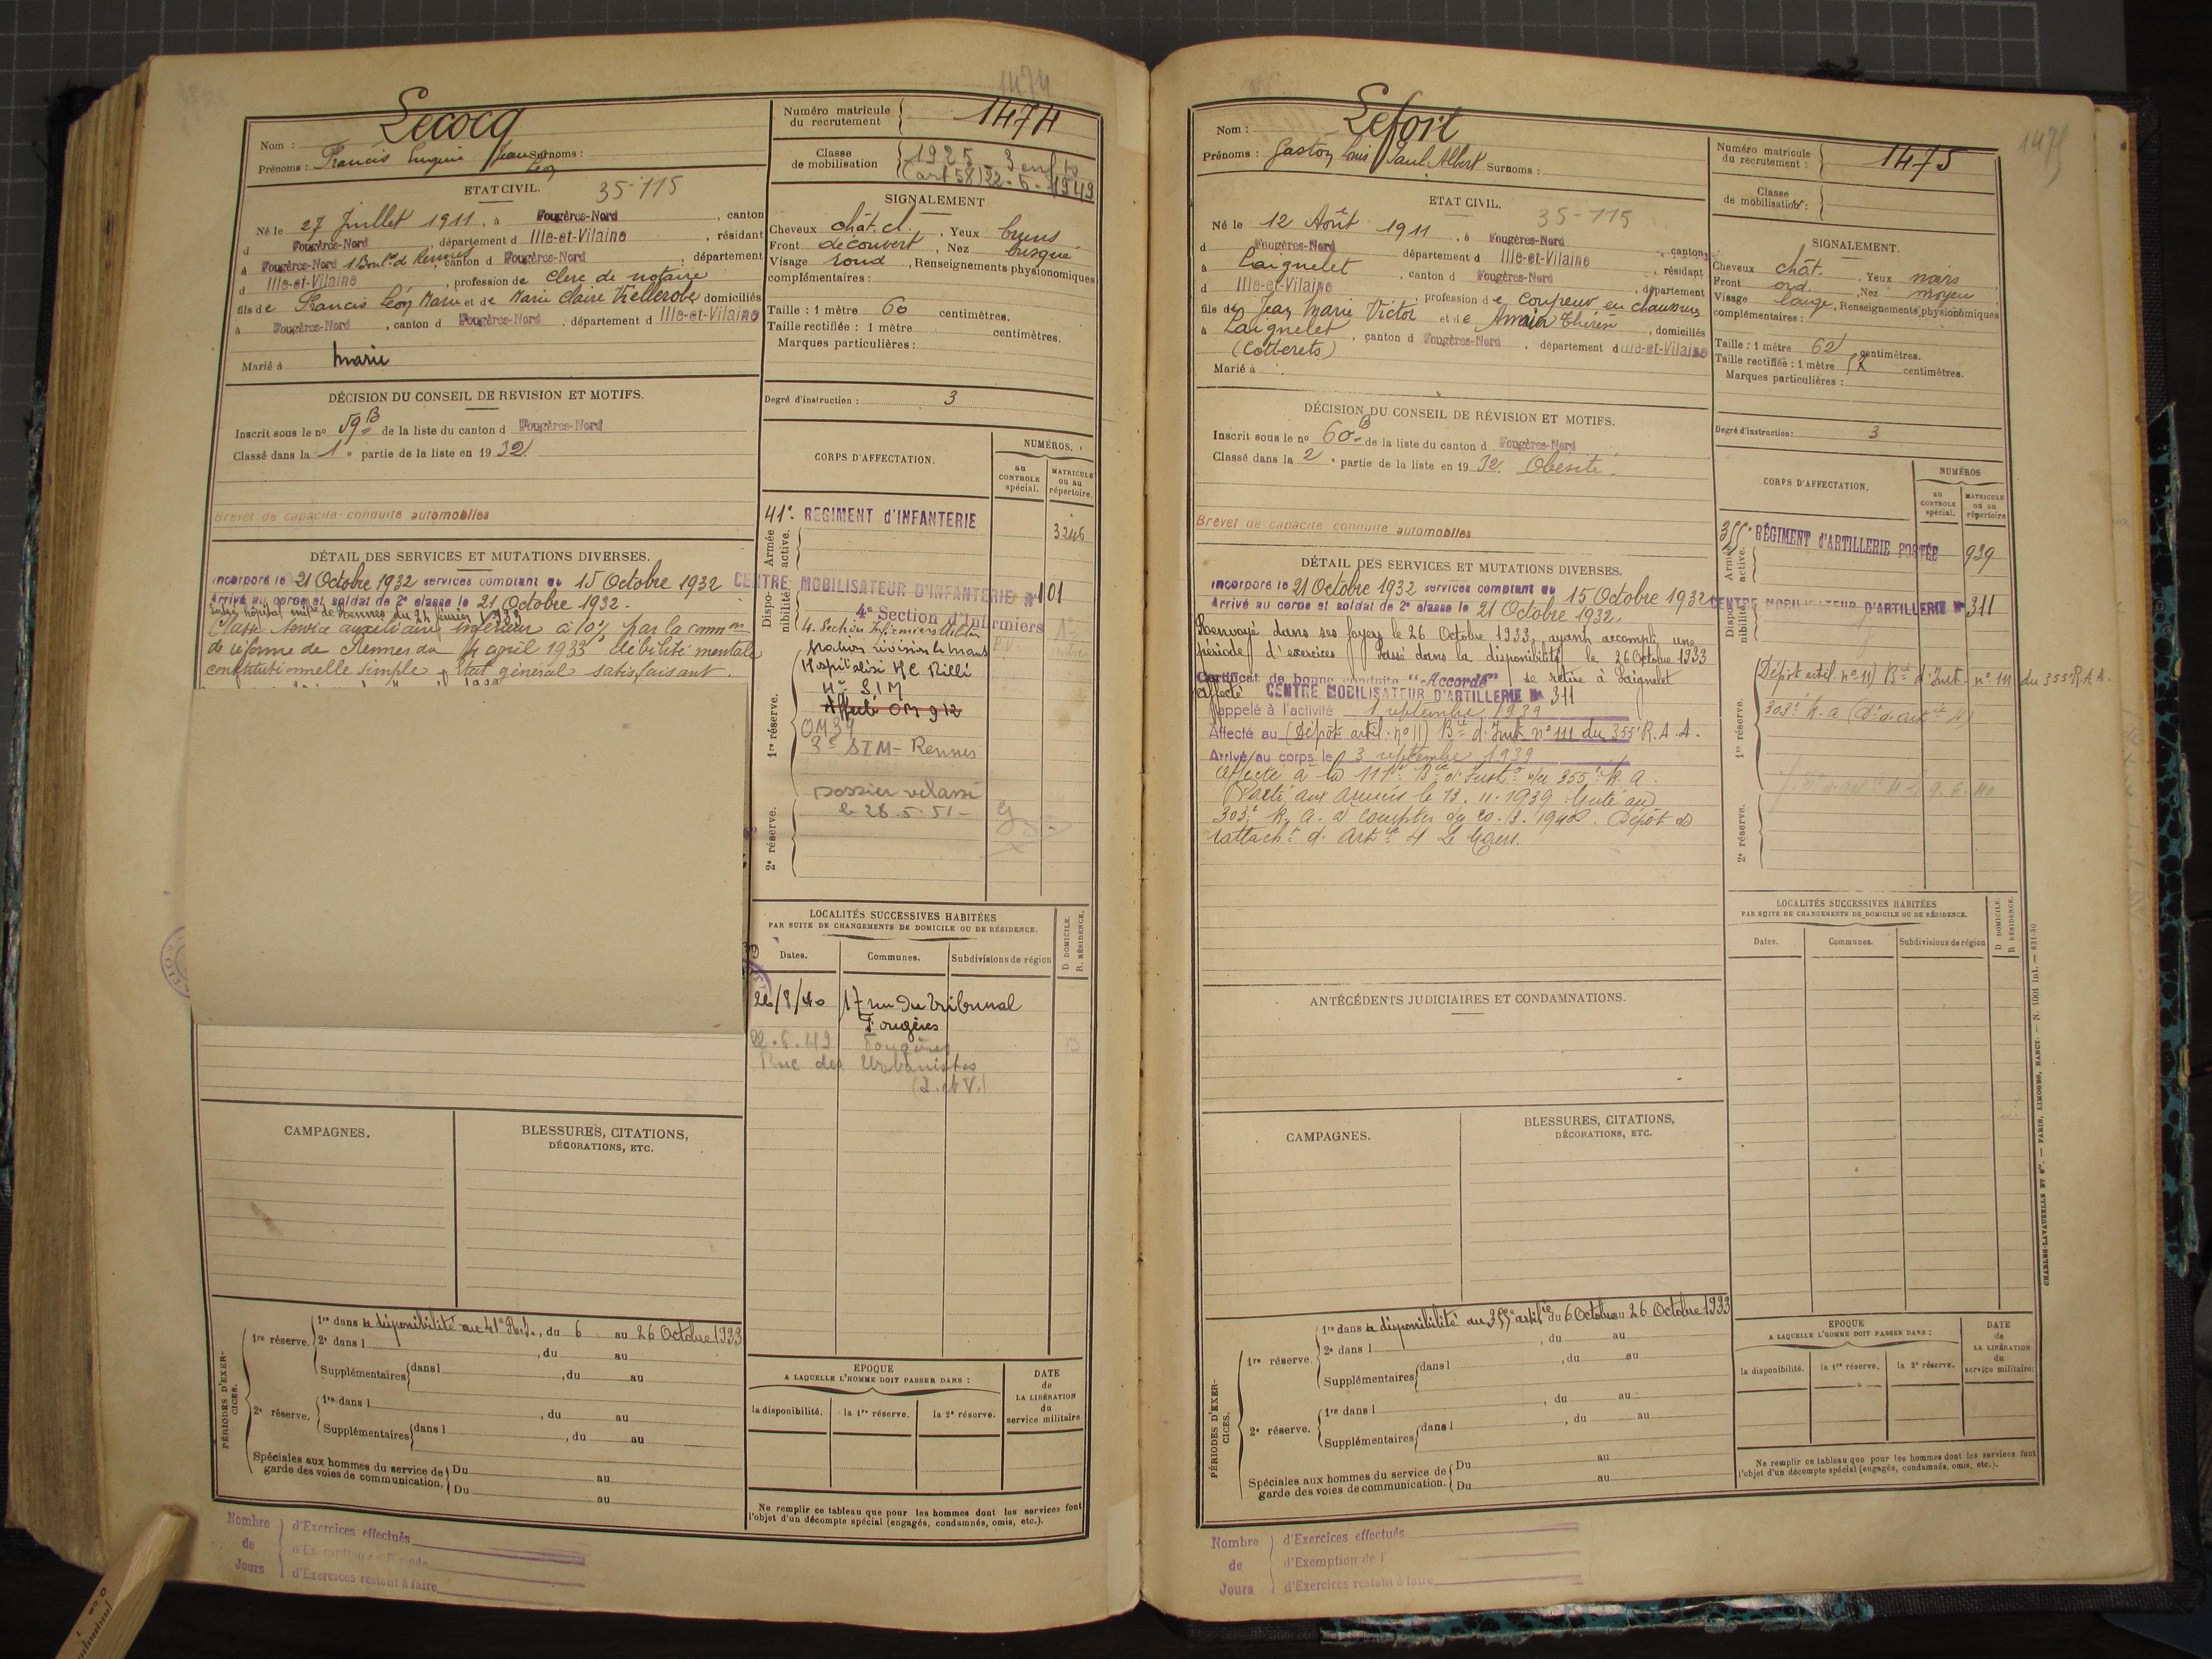 1474
Lecocq
Nom :
Prénoms : Francis Eugène Jean Léon Surnoms :
Numéro matricule
du recrutement
1474
Classe
de mobilisation
1925 3 enfts
(art 58) 22.6.1949
ETAT CIVIL.
35-115
Né le 27 Juillet 1911, à Fougères-Nord, canton
d Fougères-Nord, département d Ille-et-Vilaine, résidant
à Fougères-Nord 1 Boul.d de Rennes, canton d Fougères-Nord, département
d Ille-et-Vilaine, profession de Clerc de notaire
fils de Francis Léon Marie et de Marie Claire domiciliés
à Fougères-Nord, canton d Fougères-Nord, département d Ille-et-Vilaine
Marié à Marié
SIGNALEMENT
Cheveux chât. cl., Yeux bruns
Front découvert, Nez busqué
Visage rond, Renseignements physionomiques
complémentaires :
Taille : 1 mètre 60 centimètres.
Taille rectifiée : 1 mètre centimètres.
Marques particulières :
Degré d'instruction : 3
DÉCISION DU CONSEIL DE REVISION ET MOTIFS.
Inscrit sous le no 59 B de la liste du canton d Fougères-Nord
Classé dans la 1e partie de la liste en 1932.
Brevet de capacité conduite automobiles
DÉTAIL DES SERVICES ET MUTATIONS DIVERSES.
Incorporé le 21 Octobre 1932 services comptant du 15 Octobre 1932
Arrivé au corps et soldat de 2e classe le 21 Octobre 1932.
Entré hôpital mil.re de Rennes du 24 février 1933
Classé service auxiliaire inférieur à 10% par la comm.on
de réforme de Rennes du 4 avril 1933 débilité mentale
constitutionnelle simple, Etat général satisfaisant.
CORPS D'AFFECTATION.
NUMÉROS.
au
CONTROLE
spécial.
MATRICULE
ou au
répertoire.
Armée
active.
41e. REGIMENT d'INFANTERIE
3246
Dispo-
nibilité.
CENTRE MOBILISATEUR D'INFANTERIE N° 101
4e Section d'Infirmiers
4. Section Infirmiers Milit.
1re réserve.
Hospitalisé HC Rillé
4e SIM
Affecté OM 912
OM 39
3e SIM - Rennes
Dossier reclassé
le 28.5.51 -
2e réserve.
LOCALITÉS SUCCESSIVES HABITÉES
PAR SUITE DE CHANGEMENTS DE DOMICILE OU DE RÉSIDENCE.
Dates.
Communes.
Subdivisions de région
D DOMICILE.
R. RÉSIDENCE.
26/8/40 17 rue du Tribunal
Fougères
22.6.49 Fougères
D
Rue des Urbanistes
(I. et V.)
CAMPAGNES.
BLESSURES, CITATIONS,
DÉCORATIONS, ETC.
PÉRIODES D'EXER-
CICES.
1re réserve.
1re dans la disponibilité au 41e R.I., du 6 au 26 Octobre 1933
2e dans l , du au
Supplémentaires dans l , du au
2e réserve.
1re dans l , du au
Supplémentaires dans l , du au
Spéciales aux hommes du service de
garde des voies de communication.
Du au
Du au
EPOQUE
A LAQUELLE L'HOMME DOIT PASSER DANS :
la disponibilité.
la 1re réserve.
la 2e réserve.
DATE
de
LA LIBÉRATION
du
service militaire
Ne remplir ce tableau que pour les hommes dont les services font
l'objet d'un décompte spécial (engagés, condamnés, omis, etc.).
Nombre
de
Jours
d'Exercices effectués
d'Exercices restant à faire
1475
Lefort
Nom :
Prénoms : Gaston Louis Paul Albert Surnoms :
Numéro matricule
du recrutement :
1475
Classe
de mobilisation :
ETAT CIVIL.
35-115
Né le 12 Août 1911, à Fougères-Nord
d Fougères-Nord département d Ille-et-Vilaine, canton
à Laignelet, canton d Fougères-Nord, résidant
d Ille-et-Vilaine, profession de Coupeur en chaussures, département
fils de Jean Marie Victor et de Thérèse
à Laignelet, canton d Fougères-Nord, département d Ille-et-Vilaine, domiciliés
(Cotterets)
Marié à
SIGNALEMENT.
Cheveux chât., Yeux noirs
Front ord., Nez moyen
Visage large, Renseignements physionomiques
complémentaires :
Taille : 1 mètre 62 centimètres.
Taille rectifiée : 1 mètre centimètres.
Marques particulières :
Degré d'instruction : 3
DÉCISION DU CONSEIL DE RÉVISION ET MOTIFS.
Inscrit sous le no 60 B de la liste du canton d Fougères-Nord
Classé dans la 2e partie de la liste en 1932. Obésité.
Brevet de capacité conduite automobiles
DÉTAIL DES SERVICES ET MUTATIONS DIVERSES.
Incorporé le 21 Octobre 1932 services comptant du 15 Octobre 1932
Arrivé au corps et soldat de 2e classe le 21 Octobre 1932.
Renvoyé dans ses foyers le 26 Octobre 1933, ayant accompli une
période d'exercices Passé dans la disponibilité le 26 Octobre 1933
Certificat de bonne conduite "Accordé" se retire à Laignelet
Affecté CENTRE MOBILISATEUR D'ARTILLERIE N° 311
Rappelé à l'activité 1 septembre 1939
Affecté au (Dépôt artil. n° 11) Bie d'Inst. n° 111 du 355e R.A.A.
Arrivé au corps le 3 septembre 1939
Affecté à la 111e Bie d'Inston du 355e R.A.
Parti aux armées le 13.11.1939. Muté au
303e R.A. à compter du 20.3.1940. Dépôt de
rattacht d'Artie 4 Le Mans.
CORPS D'AFFECTATION.
NUMÉROS
au
CONTROLE
spécial.
MATRICULE
ou au
répertoire
Armée
active.
355e RÉGIMENT d'ARTILLERIE PORTÉE
939
Dispo-
nibilité.
CENTRE MOBILISATEUR D'ARTILLERIE N° 311
1re réserve.
Dépôt artil. n° 11) Bie d'Inst. n° 111 du 355e R.A.A.
303e R.A (Dt d'artie 4)
2e réserve.
ANTÉCÉDENTS JUDICIAIRES ET CONDAMNATIONS.
LOCALITÉS SUCCESSIVES HABITÉES
PAR SUITE DE CHANGEMENTS DE DOMICILE OU DE RÉSIDENCE.
Dates.
Communes.
Subdivisions de région
D DOMICILE.
R RÉSIDENCE.
CAMPAGNES.
BLESSURES, CITATIONS,
DÉCORATIONS, ETC.
PÉRIODES D'EXER-
CICES.
1re réserve.
1re dans la disponibilité au 355e artil.ie du 6 Octobre au 26 Octobre 1933
2e dans l , du au
Supplémentaires dans l , du au
2e réserve.
1re dans l , du au
Supplémentaires dans l , du au
Spéciales aux hommes du service de
garde des voies de communication.
Du au
Du au
EPOQUE
A LAQUELLE L'HOMME DOIT PASSER DANS :
la disponibilité.
la 1re réserve.
la 2e réserve.
DATE
de
LA LIBÉRATION
du
service militaire
Ne remplir ce tableau que pour les hommes dont les services font
l'objet d'un décompte spécial (engagés, condamnés, omis, etc.).
Nombre
de
Jours
d'Exercices effectués
d'Exemption de
d'Exercices restant à faire
CHARLES-LAVAUZELLE ET Cie. — PARIS, LIMOGES, NANCY. — N. 1001 int. — 831-30